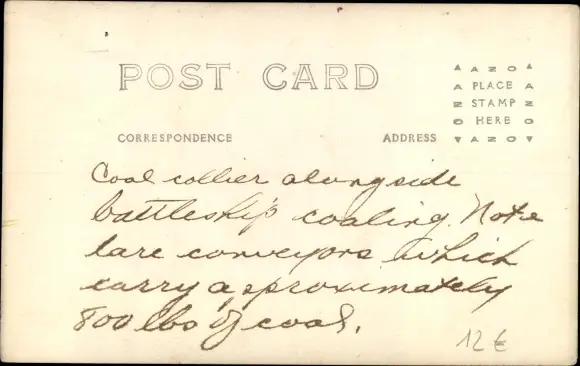 POST CARD
CORRESPONDENCE
ADDRESS
AZO
PLACE
STAMP
HERE
AZO
Coal collier alongside
battleship coaling. Note
lare conveyors which
carry approximately
800 lbs of coal.
12 €